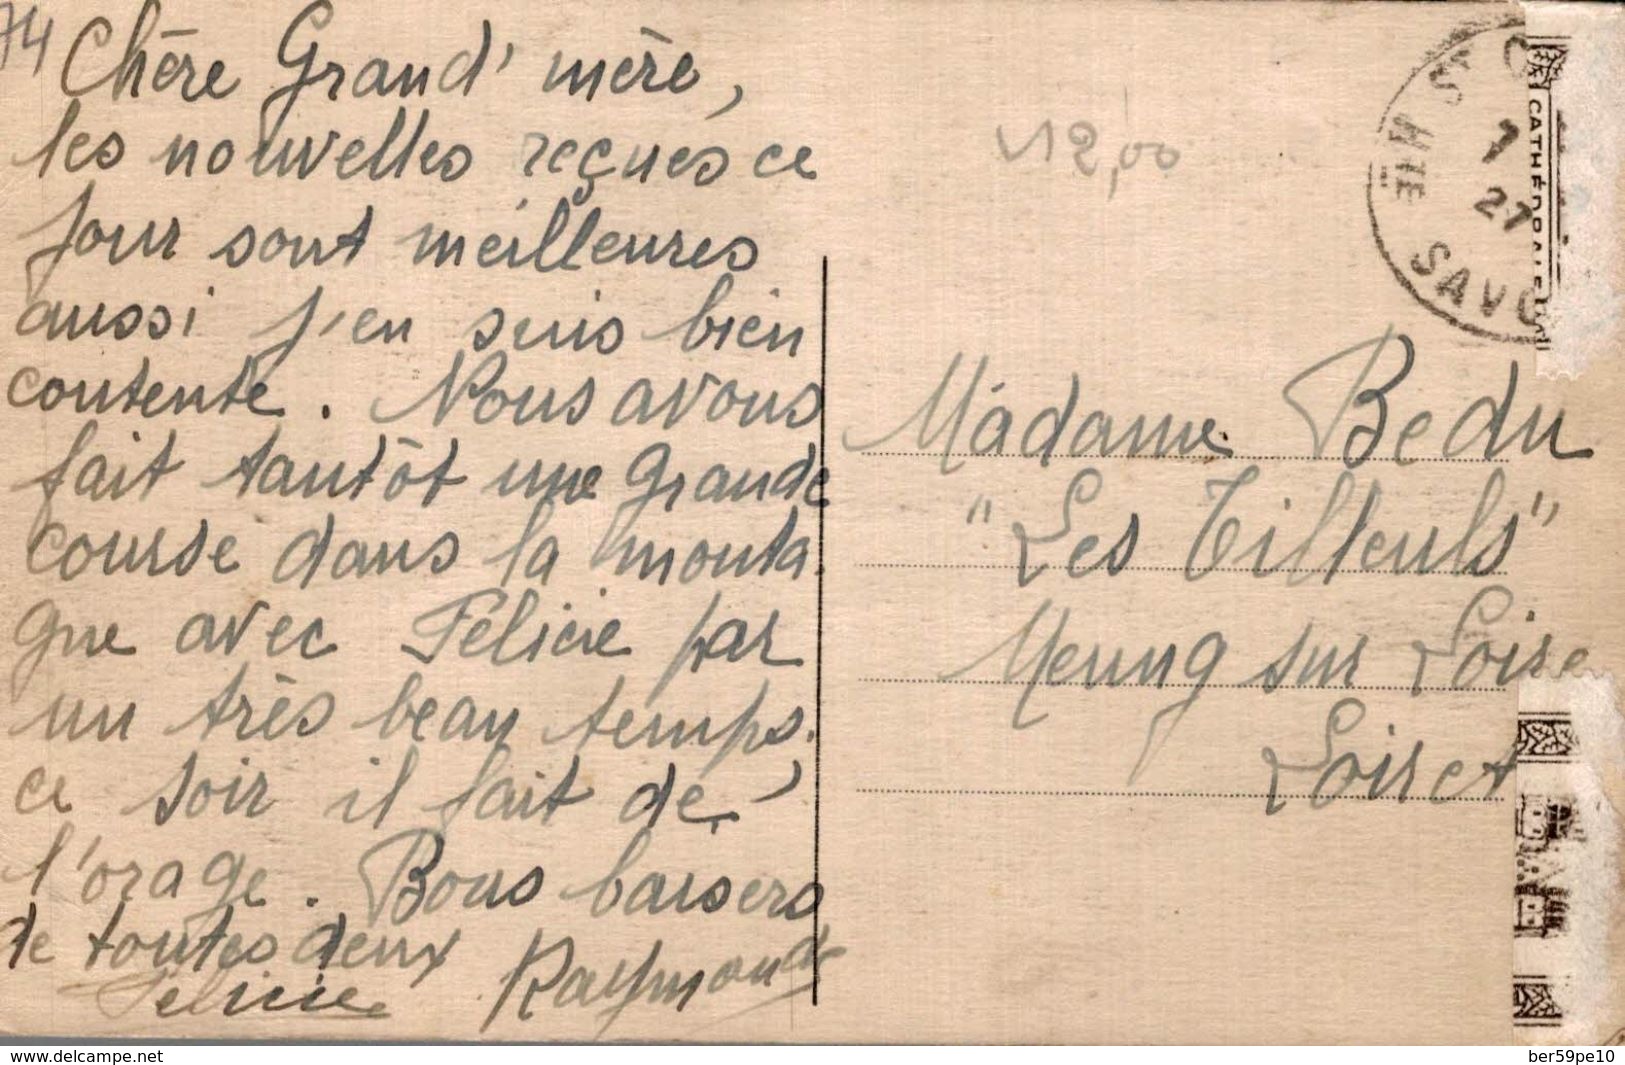 74
Chère Grand' mère,
les nouvelles reçues ce
jour sont meilleures
aussi j'en suis bien
contente. Nous avons
fait tantôt une grande
course dans la monta
gne avec Félicie par
un très beau temps.
ce soir il fait de
l'orage. Bons baisers
de toutes deux
Félicie Raymonde
12,00
HTE SAVO
7
27
CATHÉDRALE
Madame Bedu
"Les Tilleuls"
Meung sur Loire
Loiret
www.delcampe.net
ber59pe10